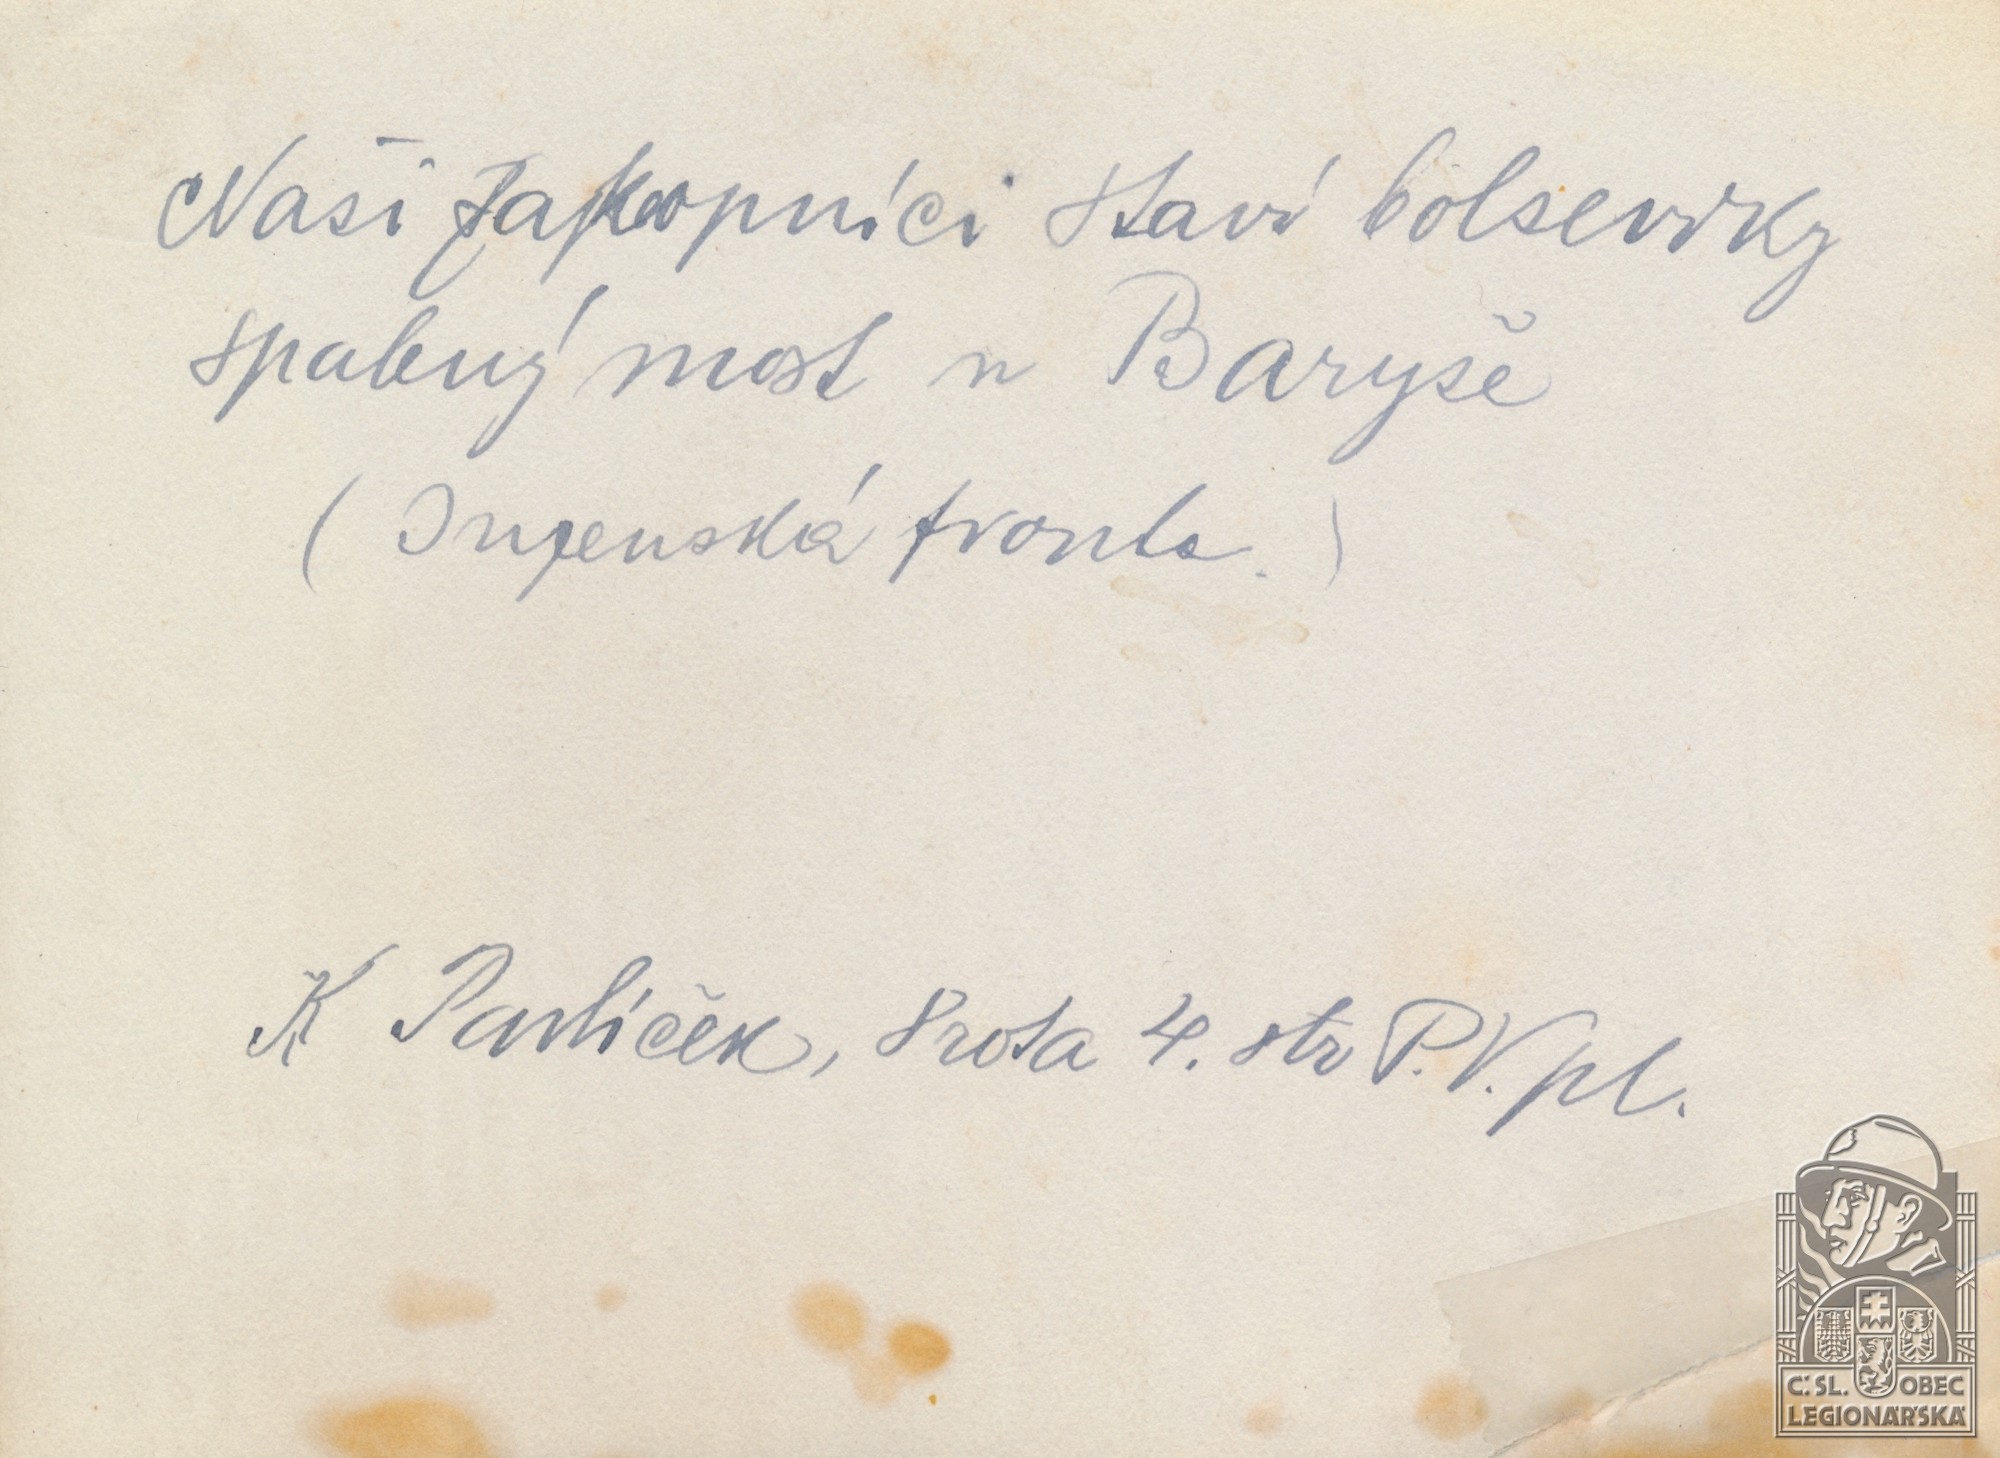 Naši zakopníci staví bolševiky
spálený most u Baryše
(Inzenská fronta.)
K Pavlíček, 8 rota 4. str P. V. pl.
Č. SL. OBEC
LEGIONÁŘSKÁ